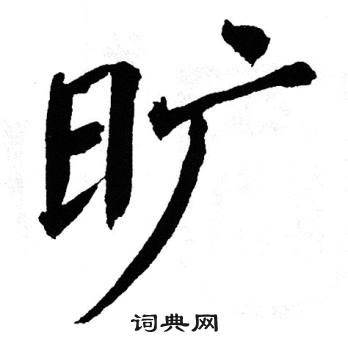 旷
词典网